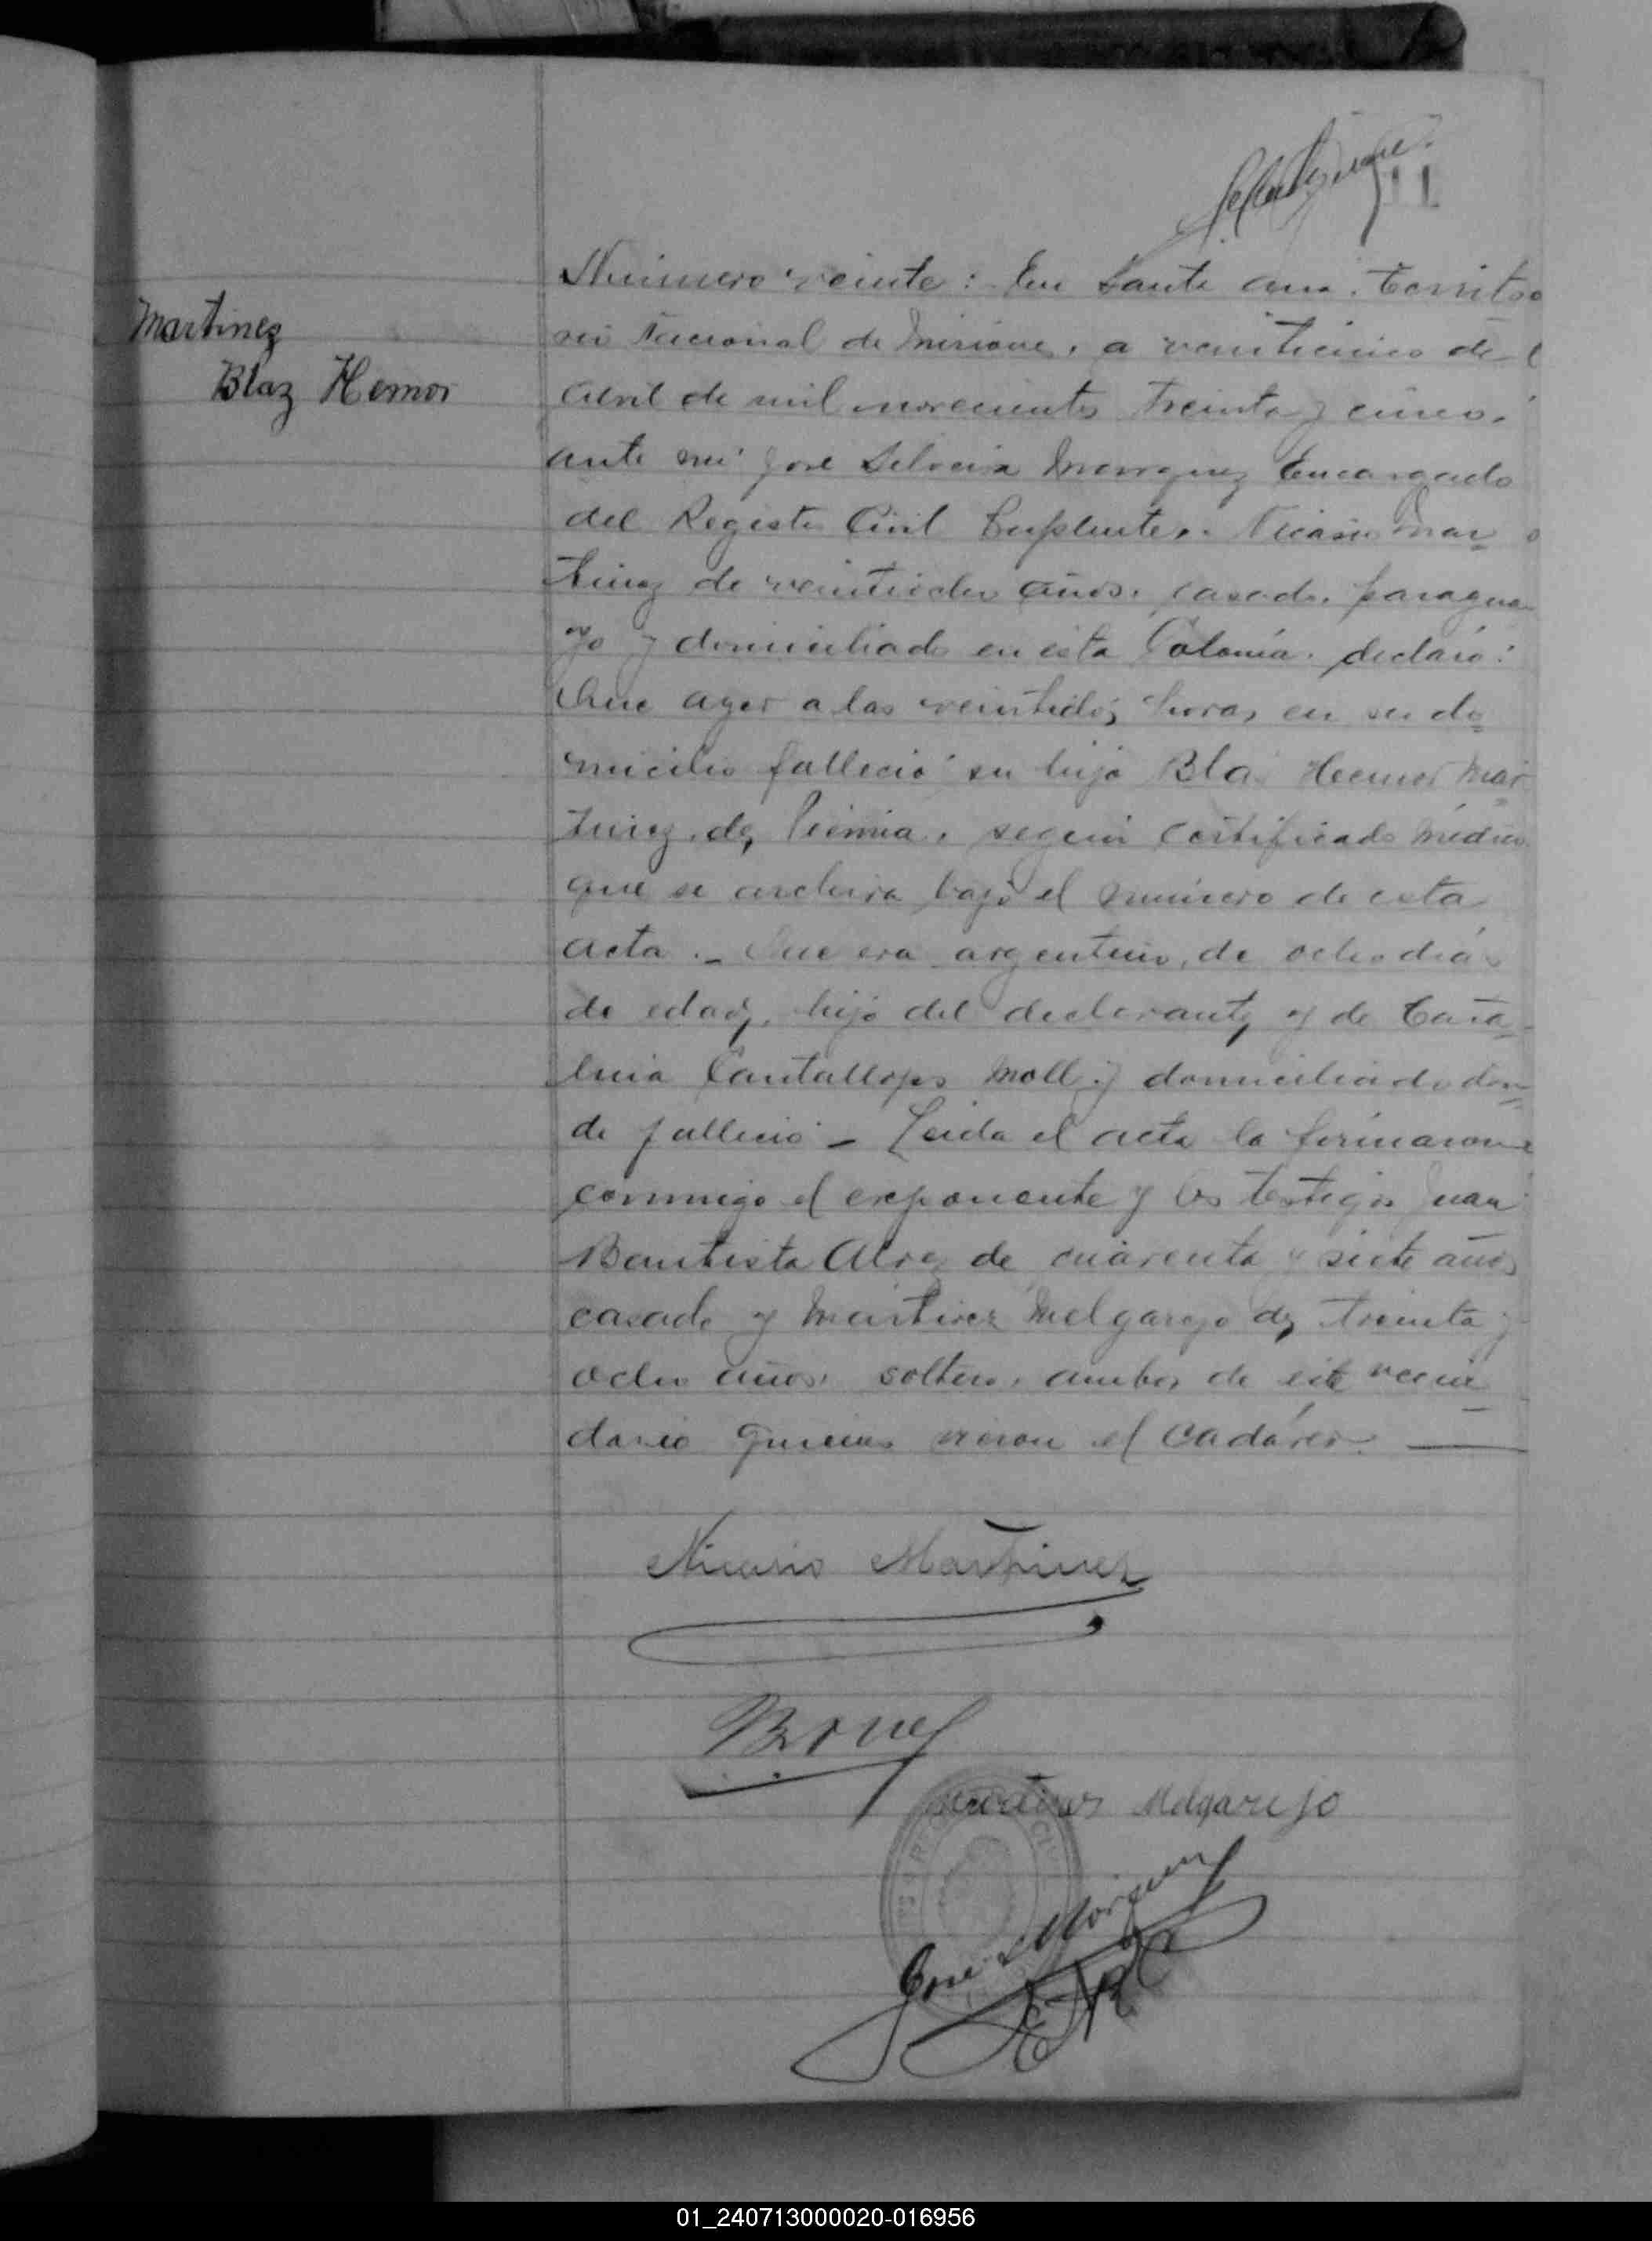 11
Martinez
Blaz Hemor
Número veinte: En Santa Ana, Territo
rio Nacional de Misiones, a veinticinco de
Abril de mil novecientos treinta y cinco,
ante mi José Silveira Marquez Encargado
del Registro Civil Suplente, Nicasio Mar
tinez de veintiocho años, casado, paragua
yo y domiciliado en esta Colonia, declaró:
Que ayer a las veintidós horas en su do
micilio falleció su hijo Blas Hemor Mar
tinez, de, según certificado médico
que se archiva bajo el número de esta
acta._ Que era argentino, de ocho dias
de edad, hijo del declarante y de Cata
lina Cantallops Moll y domiciliado don
de falleció _ Leida el acta la firmaron
conmigo el exponente y los testigos Juan
Bautista de cuarenta y siete años
casado y Martirez Melgarejo de treinta y
ocho años, soltero, ambos de este vecin
dario quienes vieron el cadáver.
Nicasio Martinez
Martirez Melgarejo
Jose S Marquez
01_240713000020-016956